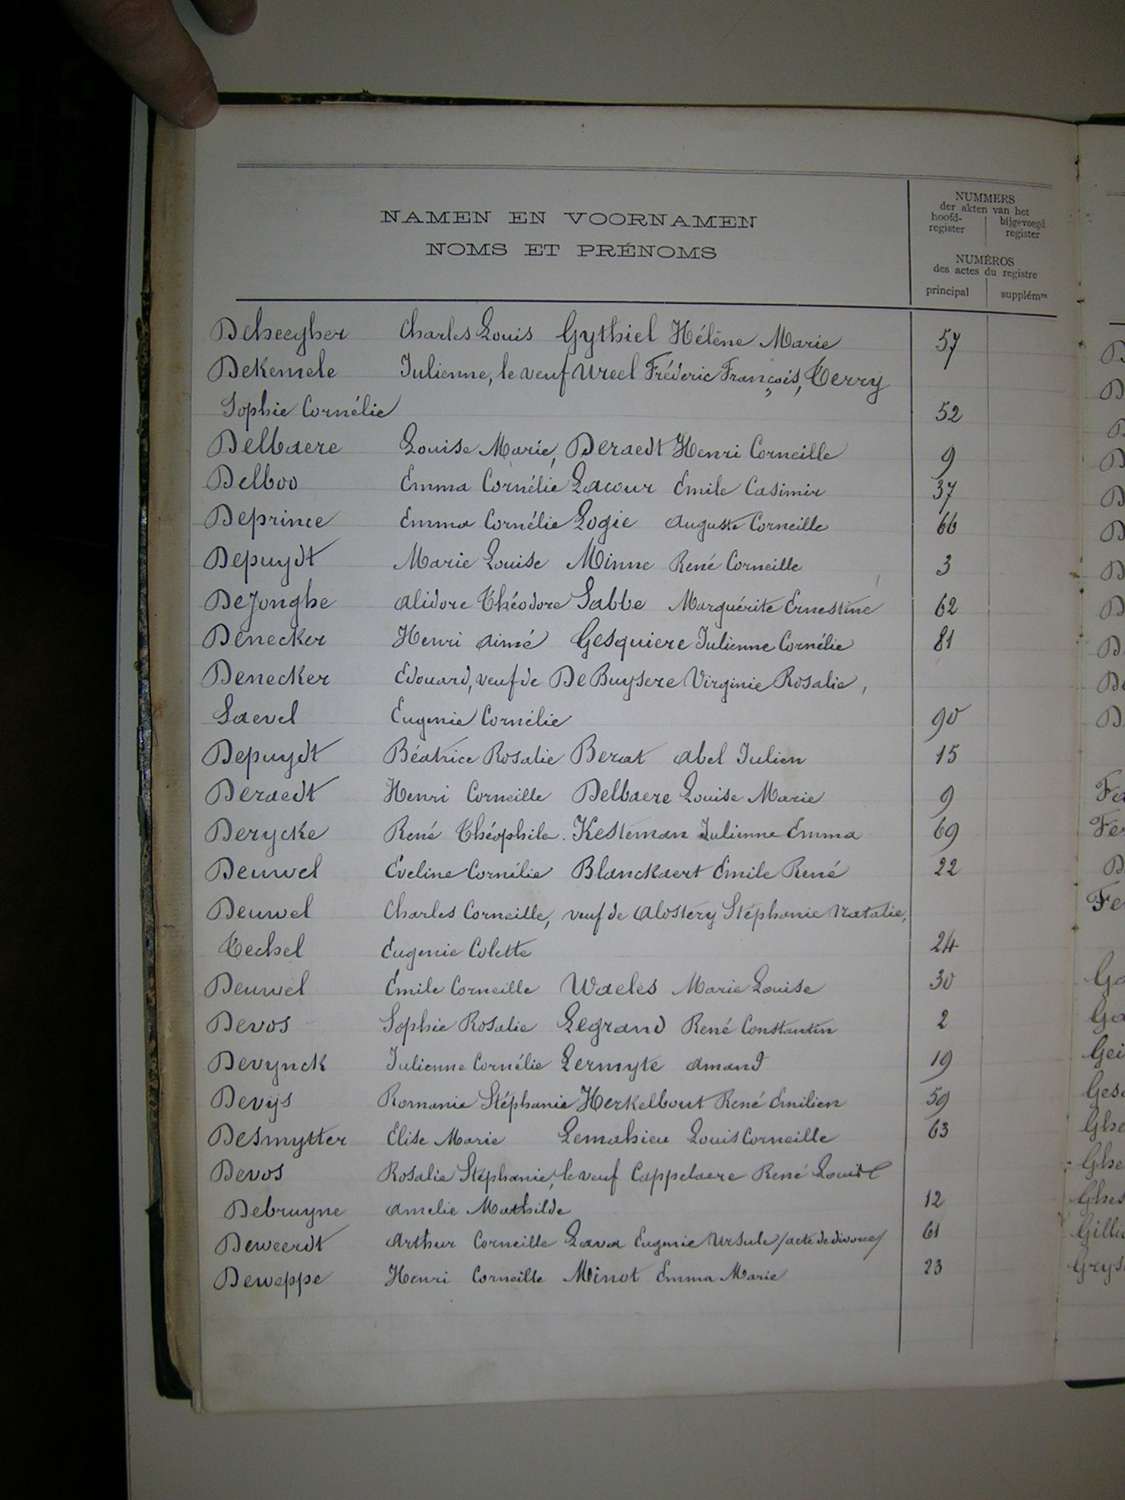 NAMEN EN VOORNAMEN
NOMS ET PRÉNOMS
NUMMERS
der akten van het
hoofd-register
bijgevoegd register
NUMÉROS
des actes du registre
principal
supplémre
Deheegher Charles Louis Gythiel Hélène Marie 57
DeKemele Julienne, le veuf Ureel Fréderic François, Terry
Sophie Cornélie 52
Delbaere Louise Marie, Deraedt Henri Corneille 9
Delboo Emma Cornélie Lacour Emile Casimir 37
Deprince Emma Cornélie Logie Auguste Corneille 66
Depuydt Marie Louise Minne René Corneille 3
DeJonghe Alidore Théodore Sabbe Marguérite Ernestine 62
Denecker Henri Aimé Gesquiere Julienne Cornélie 81
Denecker Edouard, veuf de De Buysere Virginie Rosalie,
Laevel Eugenie Cornélie 90
Depuydt Béatrice Rosalie Berat Abel Julien 15
Deraedt Henri Corneille Delbaere Louise Marie 9
Derycke René Théophile Kesteman Julienne Emma 69
Deuwel Eveline Cornélie Blanckaert Emile René 22
Deuwel Charles Corneille, veuf de Alostery Stéphanie Natalie,
Techel Eugenie Colette 24
Deuwel Emile Corneille Waeles Marie Louise 30
Devos Sophie Rosalie Legrand René Constantin 2
Devynck Julienne Cornélie Lermyte Amand 19
Devijs Romanie Stéphanie Herkelbout René Emilien 59
Desmytter Elise Marie Lemahieu Louis Corneille 63
Devos Rosalie Stéphanie, le veuf Cappelaere René Louis
Debruyne Amelie Mathilde 12
Deweerdt Arthur Corneille Lava Eugenie Ursule /acte de divorce/ 61
Deweppe Henri Corneille Minot Emma Marie 23